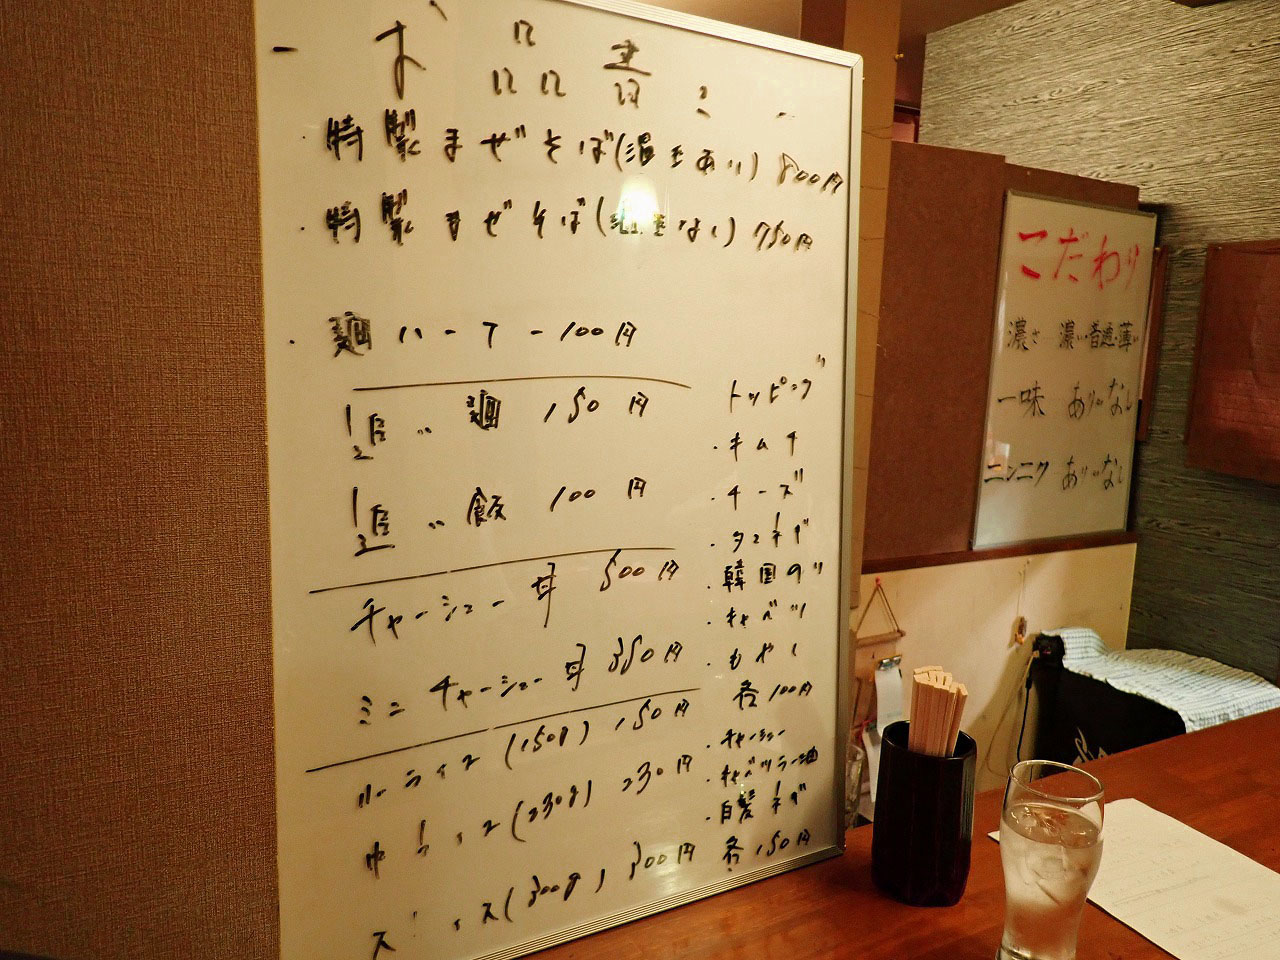 お品書
・特製まぜそば(温玉あり) 800円
・特製まぜそば(温玉なし) 750円
・麺ハーフ -100円
追い麺 150円
追い飯 100円
チャーシュー丼 500円
ミニチャーシュー丼 350円
小ライス (150g) 150円
中ライス (230g) 230円
大ライス (300g) 300円
トッピング
・キムチ
・チーズ
・タマネギ
・韓国のり
・キャベツ
・もやし
各100円
・チャーシュー
・キャベツラー油
・白髪ネギ
各150円
こだわり
濃さ 濃い・普通・薄い
一味 ありorなし
ニンニク ありorなし